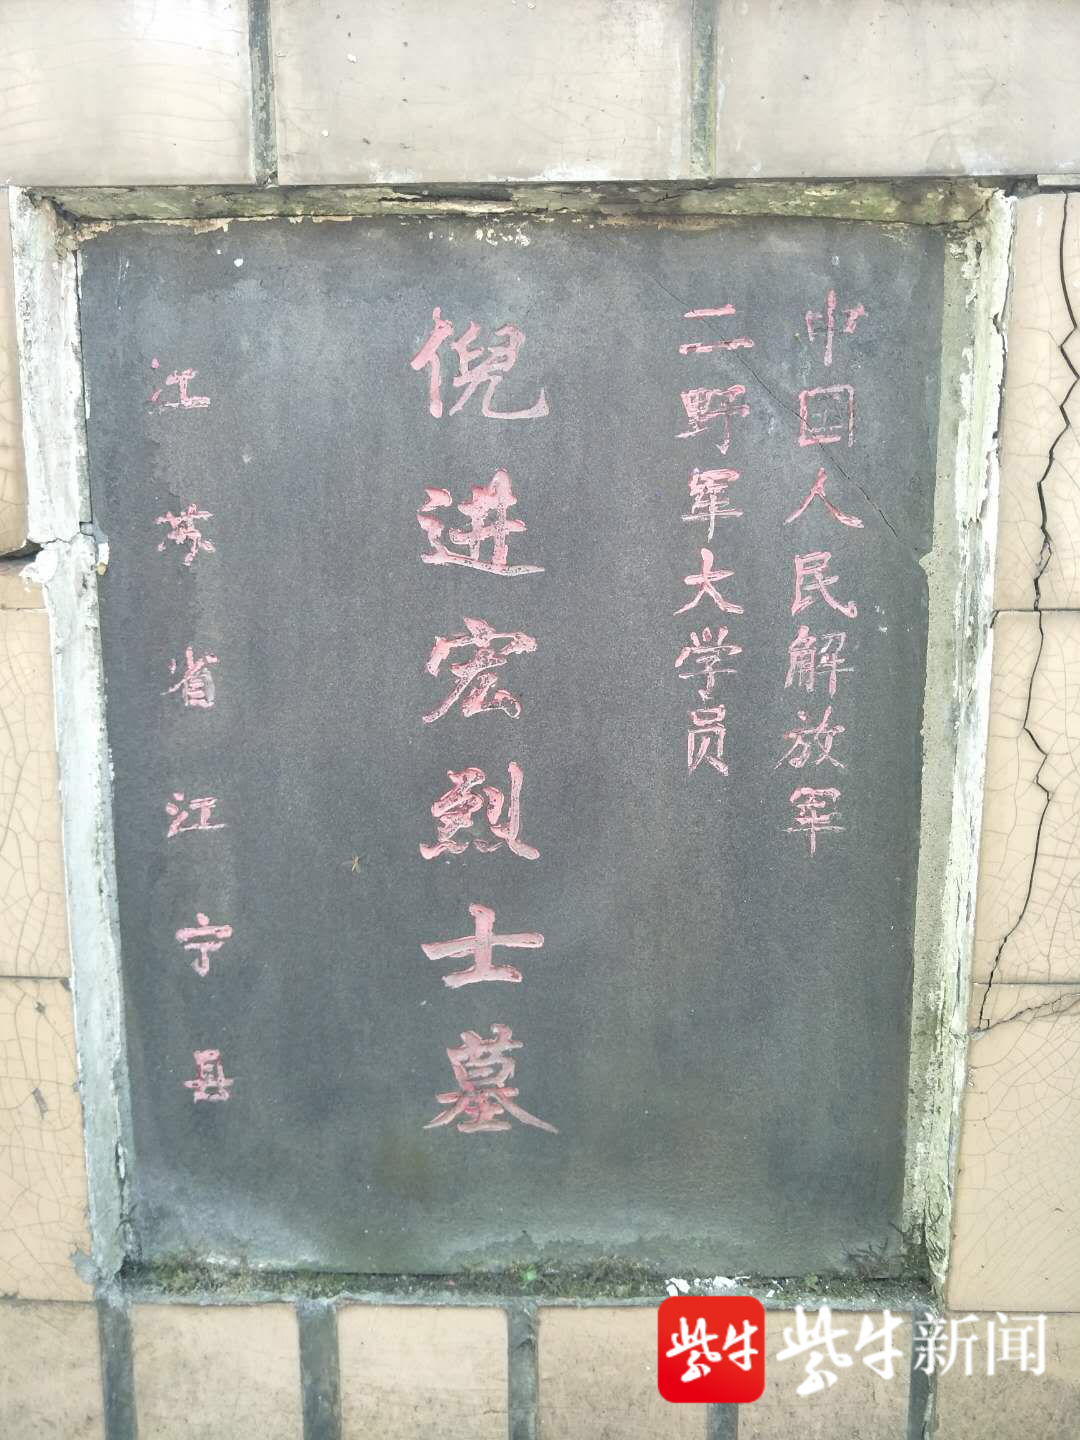 中国人民解放军
二野军大学员
倪进宏烈士墓
江苏省江宁县
紫牛
紫牛新闻